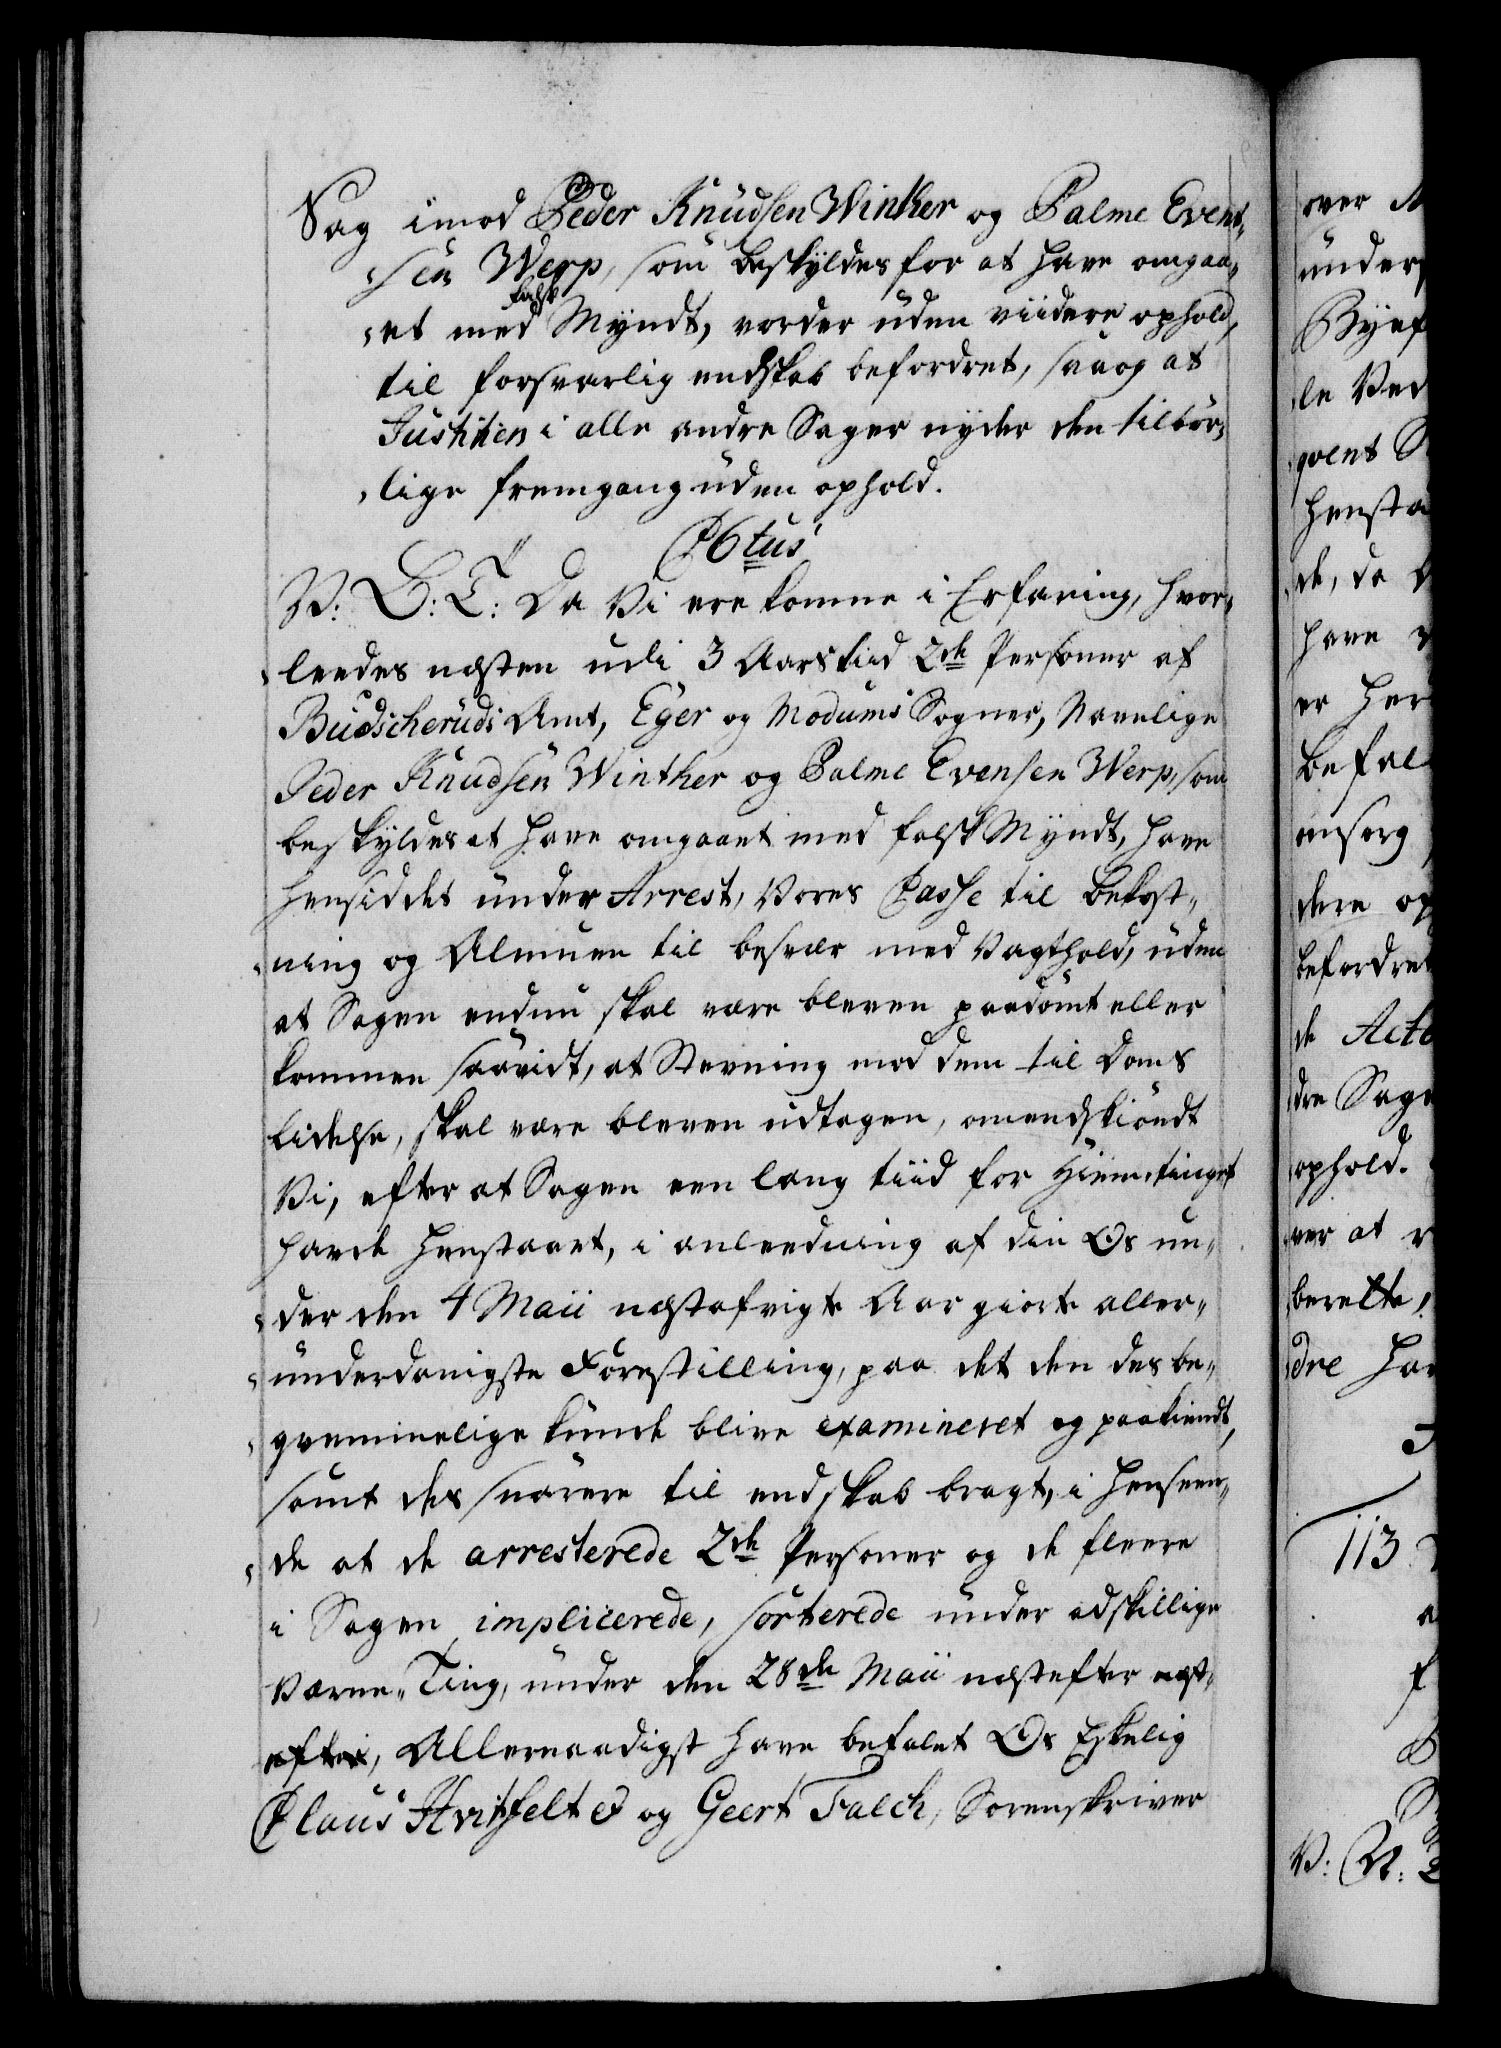 Sag imod Peder Knudsen Winther og Palme Even-
-sen Werp, som beskyldes for at have omgaa-
-et med falsk Myndt, vorder uden viidere ophold,
til forsvarlig endskab befordret, saaog at
Justitien i alle andre Sager nyder den tilbør-
-lige fremgang uden ophold.
C6tus
V: G: T: Da Vi ere komne i Erfaring, hvor-
-leedes næsten udi 3 Aars tiid 2de Personer af
Budscheruds Amt, Eger og Modums Sogner, Navnlige
Peder Knudsen Winther og Palme Evensen Werp, som
beskyldes at have omgaaet med falsk Myndt, have
hensiddet under Arrest, Vores Casse til bekost-
-ning og Almuen til besvær med Vagthold, uden
at Sagen endnu skal være bleven paadømt eller
kommen saavidt, at Stevning mod dem til Doms
Lidelse, skal være bleven udtagen, omendskiøndt
Vi, efter at Sagen een lang tiid for Hiemetinget
hafde henstaaet, i anleedning af din Os un-
-der den 4 Maii næstafvigte Aar giorte aller-
-underdanigste Forestilling, paa det den des be-
-qvemmelige kunde blive examineret og paakiendt,
samt des snarere til endskab bragt, i henseen-
-de at de arresterede 2de Personer og de fleere
i Sagen implicerede, sorterede under adskillige
Værne-Ting, under den 28de Maii næstefter næst-
efter, Allernaadigst have befalet Os Elskelig
Claus Hvitfelt og Geert Falch, Sorenskriver
over
under
Byef
-le Ved
qvent
hensta
de, da
have
er her
befal
omsorg
dere op
befordret
de Acto
dre Sage
ophold.
ver at
berette,
dre har
113
V: N: